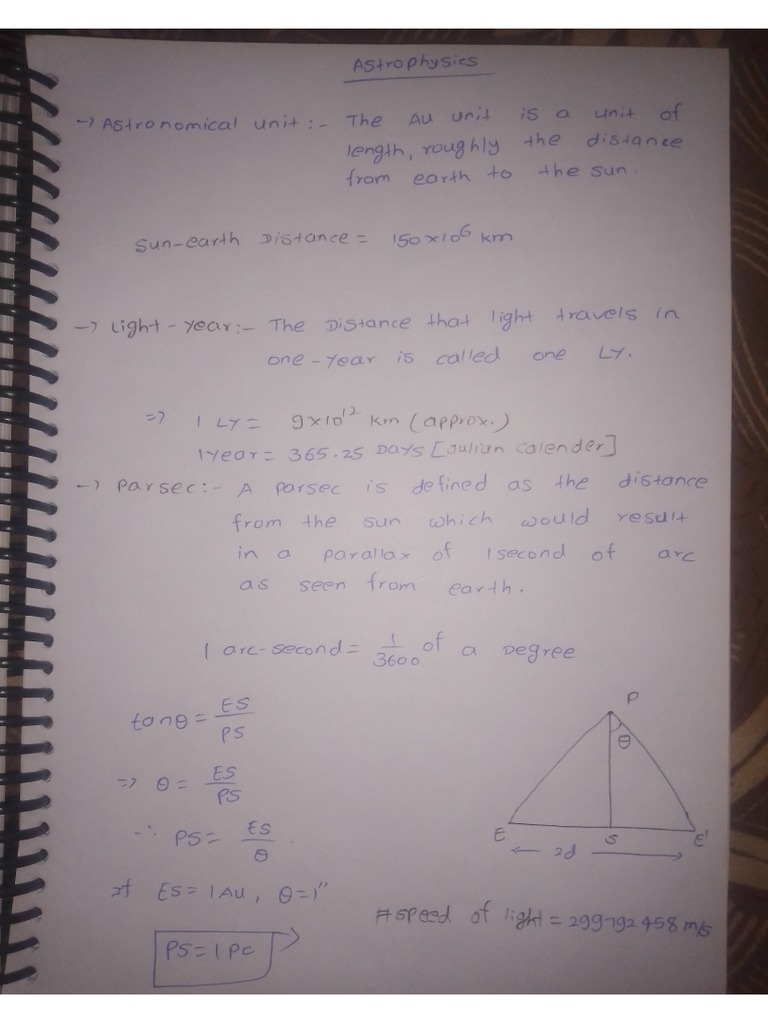 Astrophysics
→ Astronomical unit :- The AU unit is a unit of
length, roughly the distance
from earth to the sun.
Sun-earth Distance = 150×10⁶ km
→ Light-year :- The Distance that light travels in
one-year is called one LY.
⇒ 1 LY = 9×10¹² km (approx.)
1 year = 365.25 Days [Julian calender]
→ Parsec :- A Parsec is defined as the distance
from the sun which would result
in a parallax of 1 second of arc
as seen from earth.
1 arc-second = 1/3600 of a Degree
tanθ = ES/PS
⇒ θ = ES/PS
∴ PS = ES/θ
If ES = 1 AU, θ = 1"
PS = 1 PC
P
θ
E S E'
← 2d →
# speed of light = 299792458 m/s